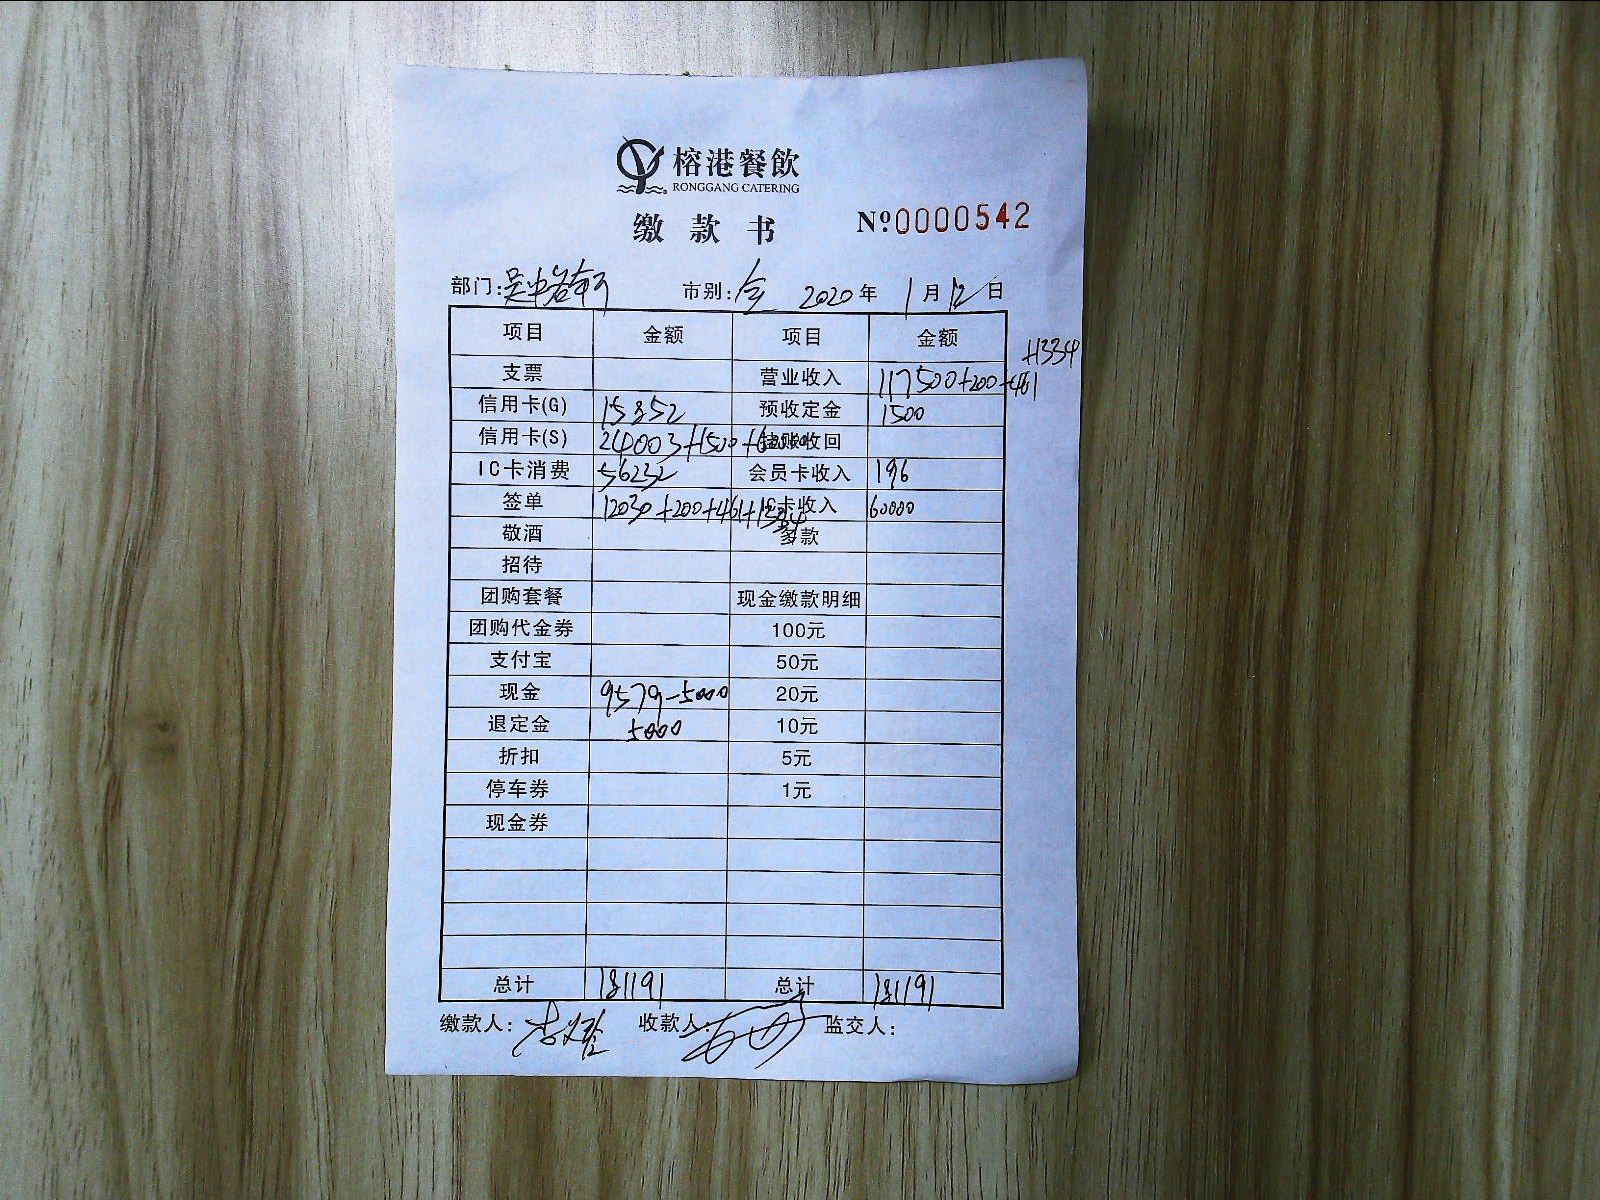 榕港餐飲
RONGGANG CATERING
缴款书 Nº0000542
部门: 市别:全 2020年 1月12日
项目 金额 项目 金额
+1334
支票 营业收入 117500+200+461
信用卡(G) 15352 预收定金 1500
信用卡(S) 24003+1500+60000 挂账收回
IC卡消费 56232 会员卡收入 196
签单 12030+200+461+1334 IC卡收入 60000
敬酒 多款
招待
团购套餐 现金缴款明细
团购代金券 100元
支付宝 50元
现金 9579-5000 20元
退定金 5000 10元
折扣 5元
停车券 1元
现金券
总计 181191 总计 181191
缴款人: 收款人: 监交人: